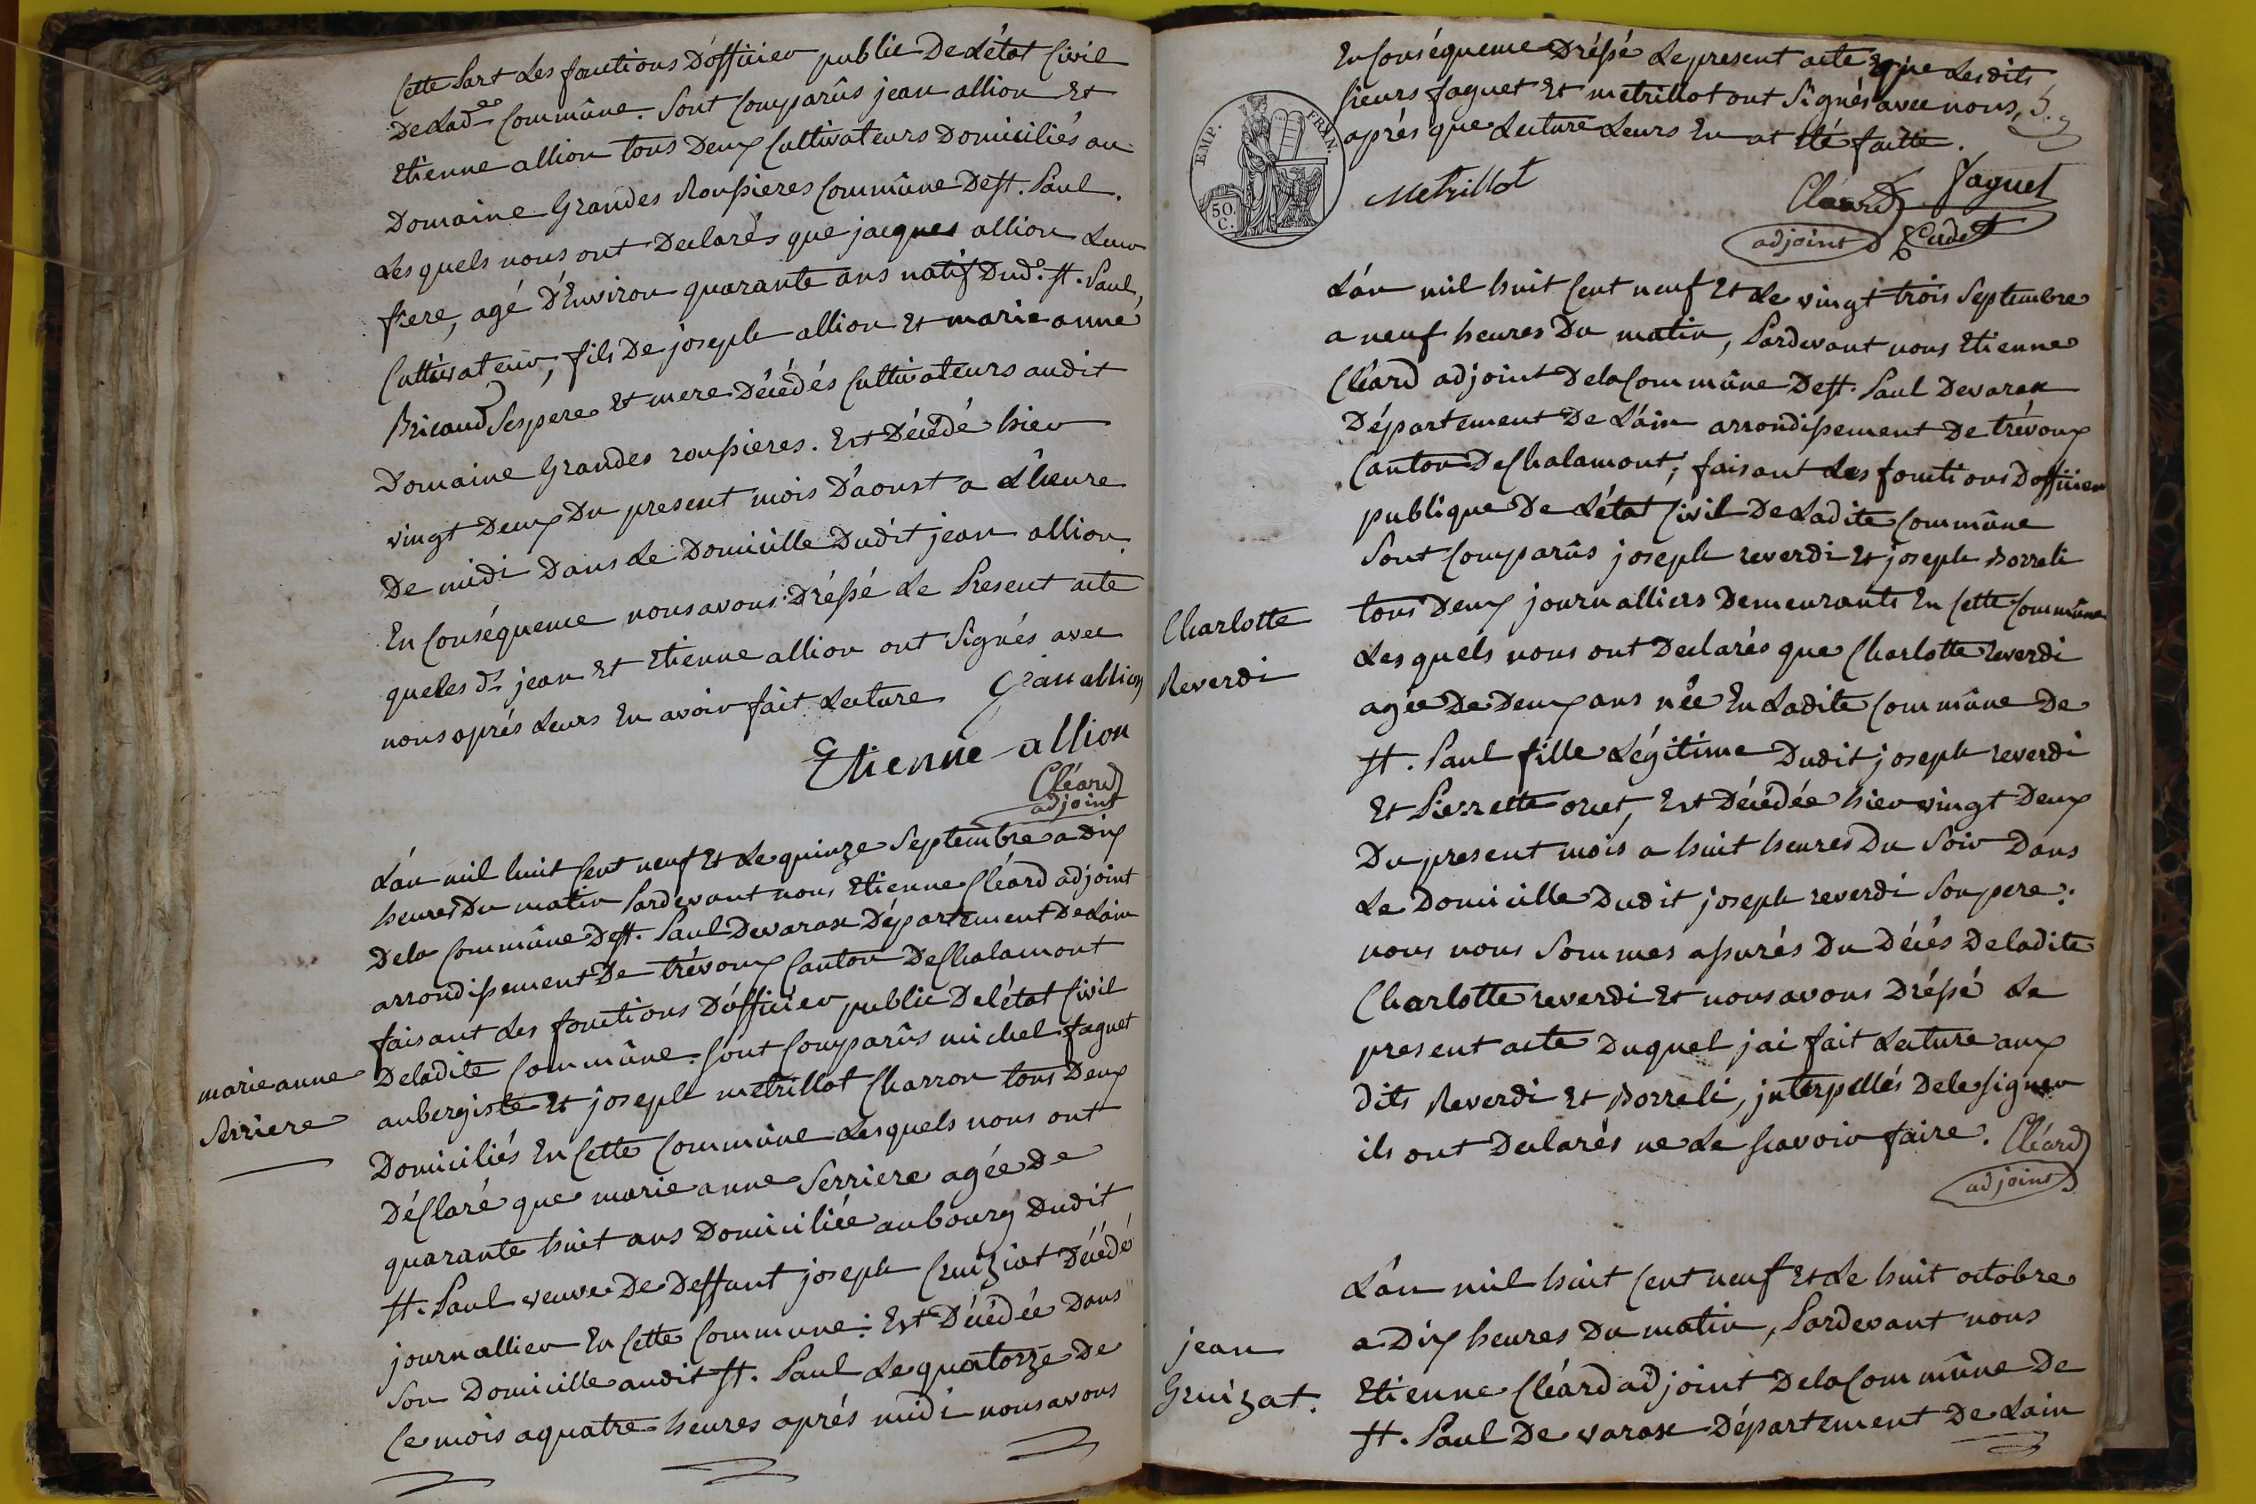 Cette part Les fonctions D'officier public De L'état Civil
De Lad.e Commûne. Sont Comparûs jean allion Et
Etienne allion tous Deux Cultivateurs Domiciliés au
Domaine Grandes Roussieres Commûne De St. Paul.
Lesquels nous ont Declarés que jacques allion Leur
frere, agé D'Environ quarante ans natif Dud.t St. Paul,
Cultivateur, fils De joseph allion Et marie anne
Bricaud Ses pere Et mere Décédés Cultivateurs audit
Domaine Grandes roussieres. Est Décédé hier
vingt Deux Du present mois D'aoust a L'heure
De midi Dans Le Domicille Dudit jean allion.
En Conséquence nous avons Dréssé Le Present acte
que Les d.ts jean Et Etienne allion ont Signés avec
nous aprés Leurs En avoir fait Lecture
Jean allion
Etienne allion
Cléard
adjoint
L'an mil huit Cent neuf Et Le quinze Septembre a Dix
heures Du matin Pardevant nous Etienne Cléard adjoint
De la Commûne De St. Paul De varax Département De L'ain
arrondissement De trévoux Canton De Chalamont
faisant Les fonctions D'officier public De L'état Civil
De Ladite Commûne. Sont Comparûs michel faguet
marie anne
Serriere
aubergiste Et joseph metrillot Charron tous Deux
Domiciliés En Cette Commûne Lesquels nous ont
Déclaré que marie anne Serriere agée De
quarante huit ans Domiciliée au bourg Dudit
St. Paul veuve De Deffunt joseph Cruiziat Décédé
journallier En Cette Commune: Est Décédée Dans
Son Domicille audit St. Paul Le quatorze De
Ce mois a quatre heures aprés midi nous avons
En Conséquence Dréssé Le present acte que Lesdits
Sieurs faguet Et metrillot ont Signés avec nous,
aprés que Lecture Leurs En at Eté faitte.
EMP. FRAN.
50 C.
Metrillot
Cléard
faguet
adjoint
L'an mil huit Cent neuf Et Le vingt trois Septembre
a neuf heures Du matin, Pardevant nous Etienne
Cléard adjoint De la Commûne De St. Paul De varax
Département De L'ain arrondissement De trévoux
Canton De Chalamont, faisant Les fonctions D'officier
publique De L'état Civil De Ladite Commûne
Sont Comparûs joseph reverdi Et joseph Borreli
Charlotte
Reverdi
tous Deux journalliers Demeurants En Cette Commûne
Lesquels nous ont Declarés que Charlotte reverdi
agée De Deux ans née En Ladite Commûne De
St. Paul fille Légitime Dudit joseph reverdi
Et Pierrette oret, Est Décédée hier vingt Deux
Du present mois a huit heures Du Soir Dans
Le Domicille Dudit joseph reverdi Son pere:
nous nous Sommes assurés Du Décés De Ladite
Charlotte reverdi Et nous avons Dréssé Le
present acte Duquel jai fait Lecture aux
dits Reverdi Et Borreli, interpellés De Le Signer
ils ont Declarés ne Le Scavoir faire. Cléard
adjoint
L'an mil huit Cent neuf Et Le huit octobre
jean
Gruizat.
a Dix heures Du matin, Pardevant nous
Etienne Cléard adjoint De La Commûne De
St. Paul De varax Département De L'ain